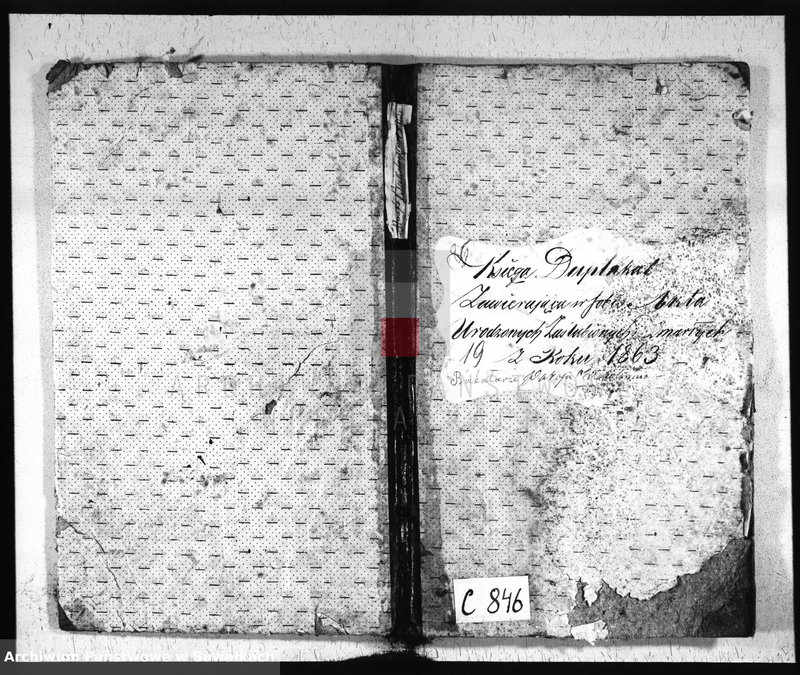 Księga Duplakat
Zawierająca w sobie Akta
Urodzonych Zaslubionych Zmarłych
19 Z Roku 1863
C 846
Archiwum Państwowe w Suwałkach